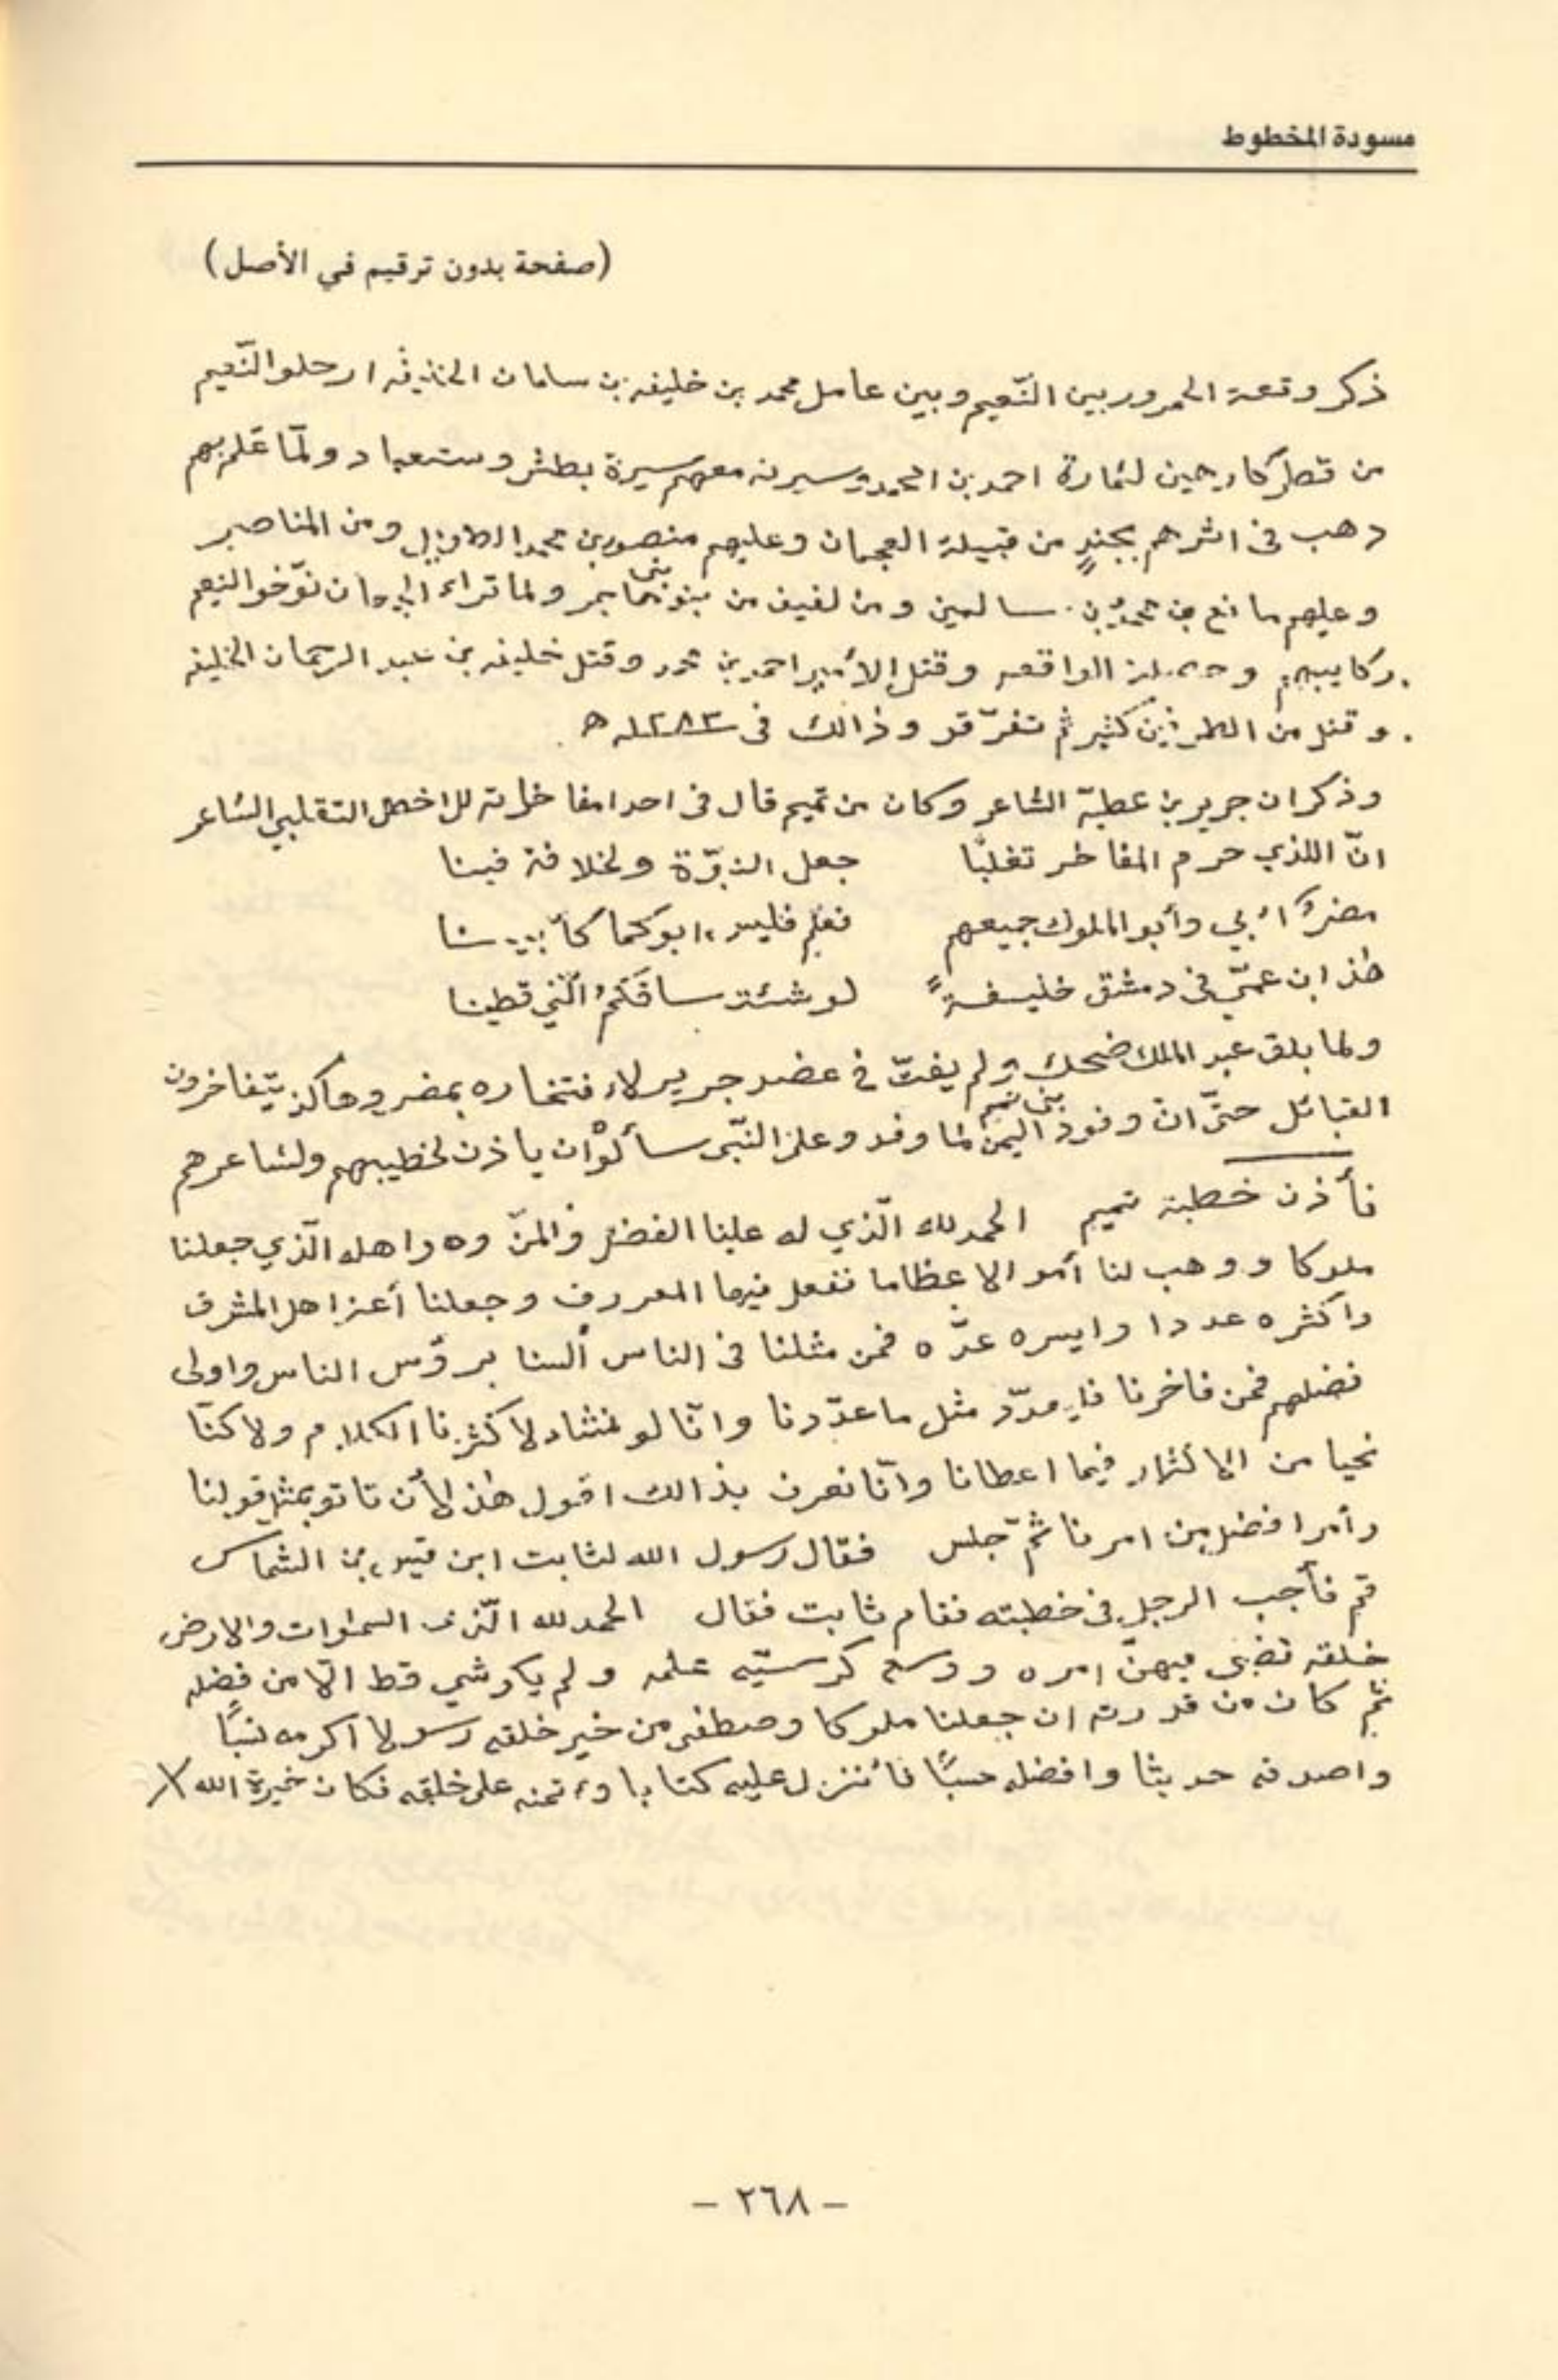 مسودة المخطوط
(صفحة بدون ترقيم في الأصل)
ذكر وقعة الحمرور بين النّعيم وبين عامل محمد بن خليفه بن سلمان الخليفه ارحلو النّعيم
من قطر كارهين لئمارة احمد بن محمد وسيرته معهم سيرة بطش وستعباد ولمّا علم بهم
دهب في اثرهم بجندٍ من قبيلة العجمان وعليهم منصور بن محمد الطويل ومن المناصير
وعليهم مانع بن محمد بن سالمين ومن لفيف من بني هاجر ولما تراء الجمعان نوّخو النعيم
ركايبهم وحصلة الواقعه وقتل الأمير احمد بن محمد وقتل خليفه بن عبد الرحمان الخليفه
وقتل من الطرفين كثير ثم تفرّقو وذالك في ١٢٨٣ ه
وذكر ان جرير بن عطيّه الشاعر وكان من تميم قال في احد امفاخراته للاخطل التقلبي الشاعر
انّ اللذي حرم المفاخر تغلبًا جعل النبوّة ولخلافة فينا
مضرٌ ابي وأبو الملوك جميعهم فعلم فليس ابوكما كأبينا
هٰذ ابن عمّي في دمشق خليفةً لو شئت ساقكمُ الّني قطينا
ولما بلق عبد الملك ضحك ولم يفتّ في عضد جرير لاء فتخاره بمضر وهاكذ يتّفاخرون
القبائل حتّى انّ وفود بني تميم اليمن لما وفدو على النّبى سألوْ ان ياذن لخطيبهم ولشاعرهم
فأذن خطبة تميم الحمد لله الّذي له علينا الفضل والمنّ وهو اهله الّذي جعلنا
ملوكا ووهب لنا أموالا عظاما نفعل فيها المعروف وجعلنا أعز اهل المشرق
واكثره عددا وايسره عدّه فمن مثلنا في الناس ألسنا برؤس الناس واولى
فضلهم فمن فاخرنا فليعدّد مثل ما عدّدنا وانّا لو نشاء لأكثرنا الكلام ولاكنّا
نحيا من الاكثار فيما اعطانا وانّا نعرف بذالك اقول هٰذ لأن تاتو بمثل قولنا
وأمر افضل من امرنا ثمّ جلس فقال رسول الله لثابت ابن قيس بن الشماس
قم فأجب الرجل في خطبته فقام ثابت فقال الحمد لله الّذى السمٰوات والارض
خلقه قضى فيهنّ امره ووسع كرسيّه علمه ولم يك شي قط الّا من فضله
ثمّ كان من قدرته ان جعلنا ملوكا وصطفى من خير خلقه رسولا اكرمه نسبًا
واصدقه حديثا وافضله حسبًا فأنزل عليه كتابا وءتمنه على خلقه فكان خيرة الله
- ٢٦٨ -